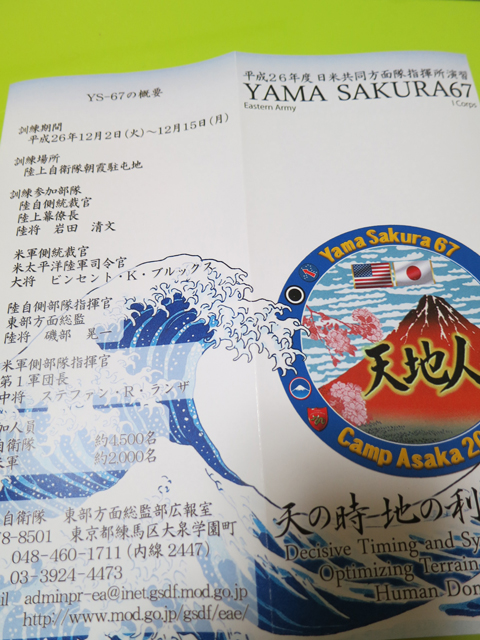 YS-67の概要
訓練期間
平成26年12月2日(火)～12月15日(月)
訓練場所
陸上自衛隊朝霞駐屯地
訓練参加部隊
陸自側統裁官
陸上幕僚長
陸将 岩田 清文
米軍側統裁官
米太平洋陸軍司令官
大将 ビンセント・K・ブルックス
陸自側部隊指揮官
東部方面総監
陸将 磯部 晃一
米軍側部隊指揮官
第1軍団長
中将 ステファン・R・ランザ
加人員
自衛隊 約4500名
米軍 約2000名
自衛隊 東部方面総監部広報室
78-8501 東京都練馬区大泉学園町
048-460-1711(内線2447)
03-3924-4473
il adminpr-ea@inet.gsdf.mod.go.jp
http://www.mod.go.jp/gsdf/eae/
平成26年度 日米共同方面隊指揮所演習
YAMA SAKURA67
Eastern Army I Corps
Yama Sakura 67
天地人
Camp Asaka 20
天の時 地の利
Decisive Timing and Sy
Optimizing Terrain
Human Dom